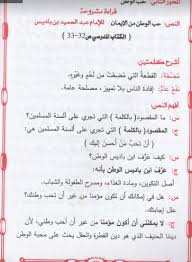 المحور الثاني: حب الوطن
قراءة مشروحة
النص: حب الوطن من الإيمان للإمام عبد الحميد بن باديس
(الكتاب المدرسي ص32-33)
أشرح كلمتين
مُضْغَة: القطعةُ التي تُمضغُ من لحم وغيره.
نفع: إفادة الناس بما يفيدهم، مصلحة عامة.
أفهم النص
س: ما المقصود (بالكلمة) التي تجري على ألسنة المسلمين؟
ج: المقصود (بالكلمة) التي تجري على ألسنة المسلمين هي
( أنّ نحبّ من أحسن إليك )
س: كيف عرّف ابن باديس الوطن؟
ج: عرّف ابن باديس الوطن بأنه:
أصل التكوين، ومادة الغذاء، ومسرح الطفولة والشباب.
س: هل يمكنك أن تكون مؤمنا من غير أن تحب وطنك؟
علل إجابتك.
ج: لا يمكنني أن أكون مؤمنا من غير أن أحب وطني، لأن
ديننا الحنيف الذي هو دين الفطرة والعقل يحث على محبة الوطن